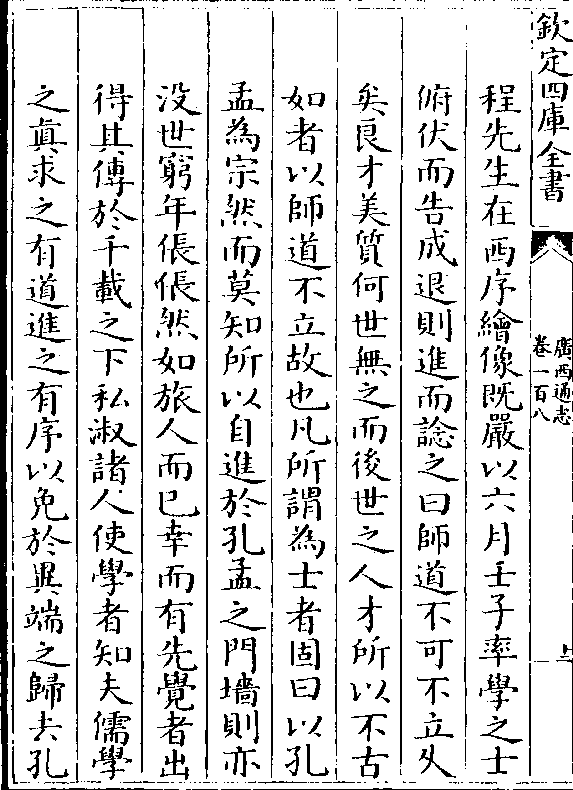 欽定四庫全書
廣西通志
卷一百八
程先生在西序繪像既嚴以六月壬子率學之士
俯伏而告成退則進而諗之曰師道不可不立乆
矣良才美質何世無之而後世之人才所以不古
如者以師道不立故也凡所謂為士者固曰以孔
孟為宗然而莫知所以自進於孔孟之門墻則亦
没世窮年倀倀然如旅人而已幸而有先覺者出
得其傳於千載之下私淑諸人使學者知夫儒學
之真求之有道進之有序以免於異端之歸去孔